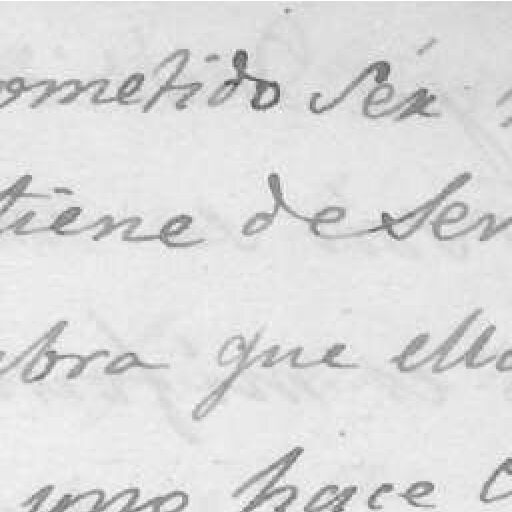 ometido Séx
tiene de Ser
bra que ella
uno hace